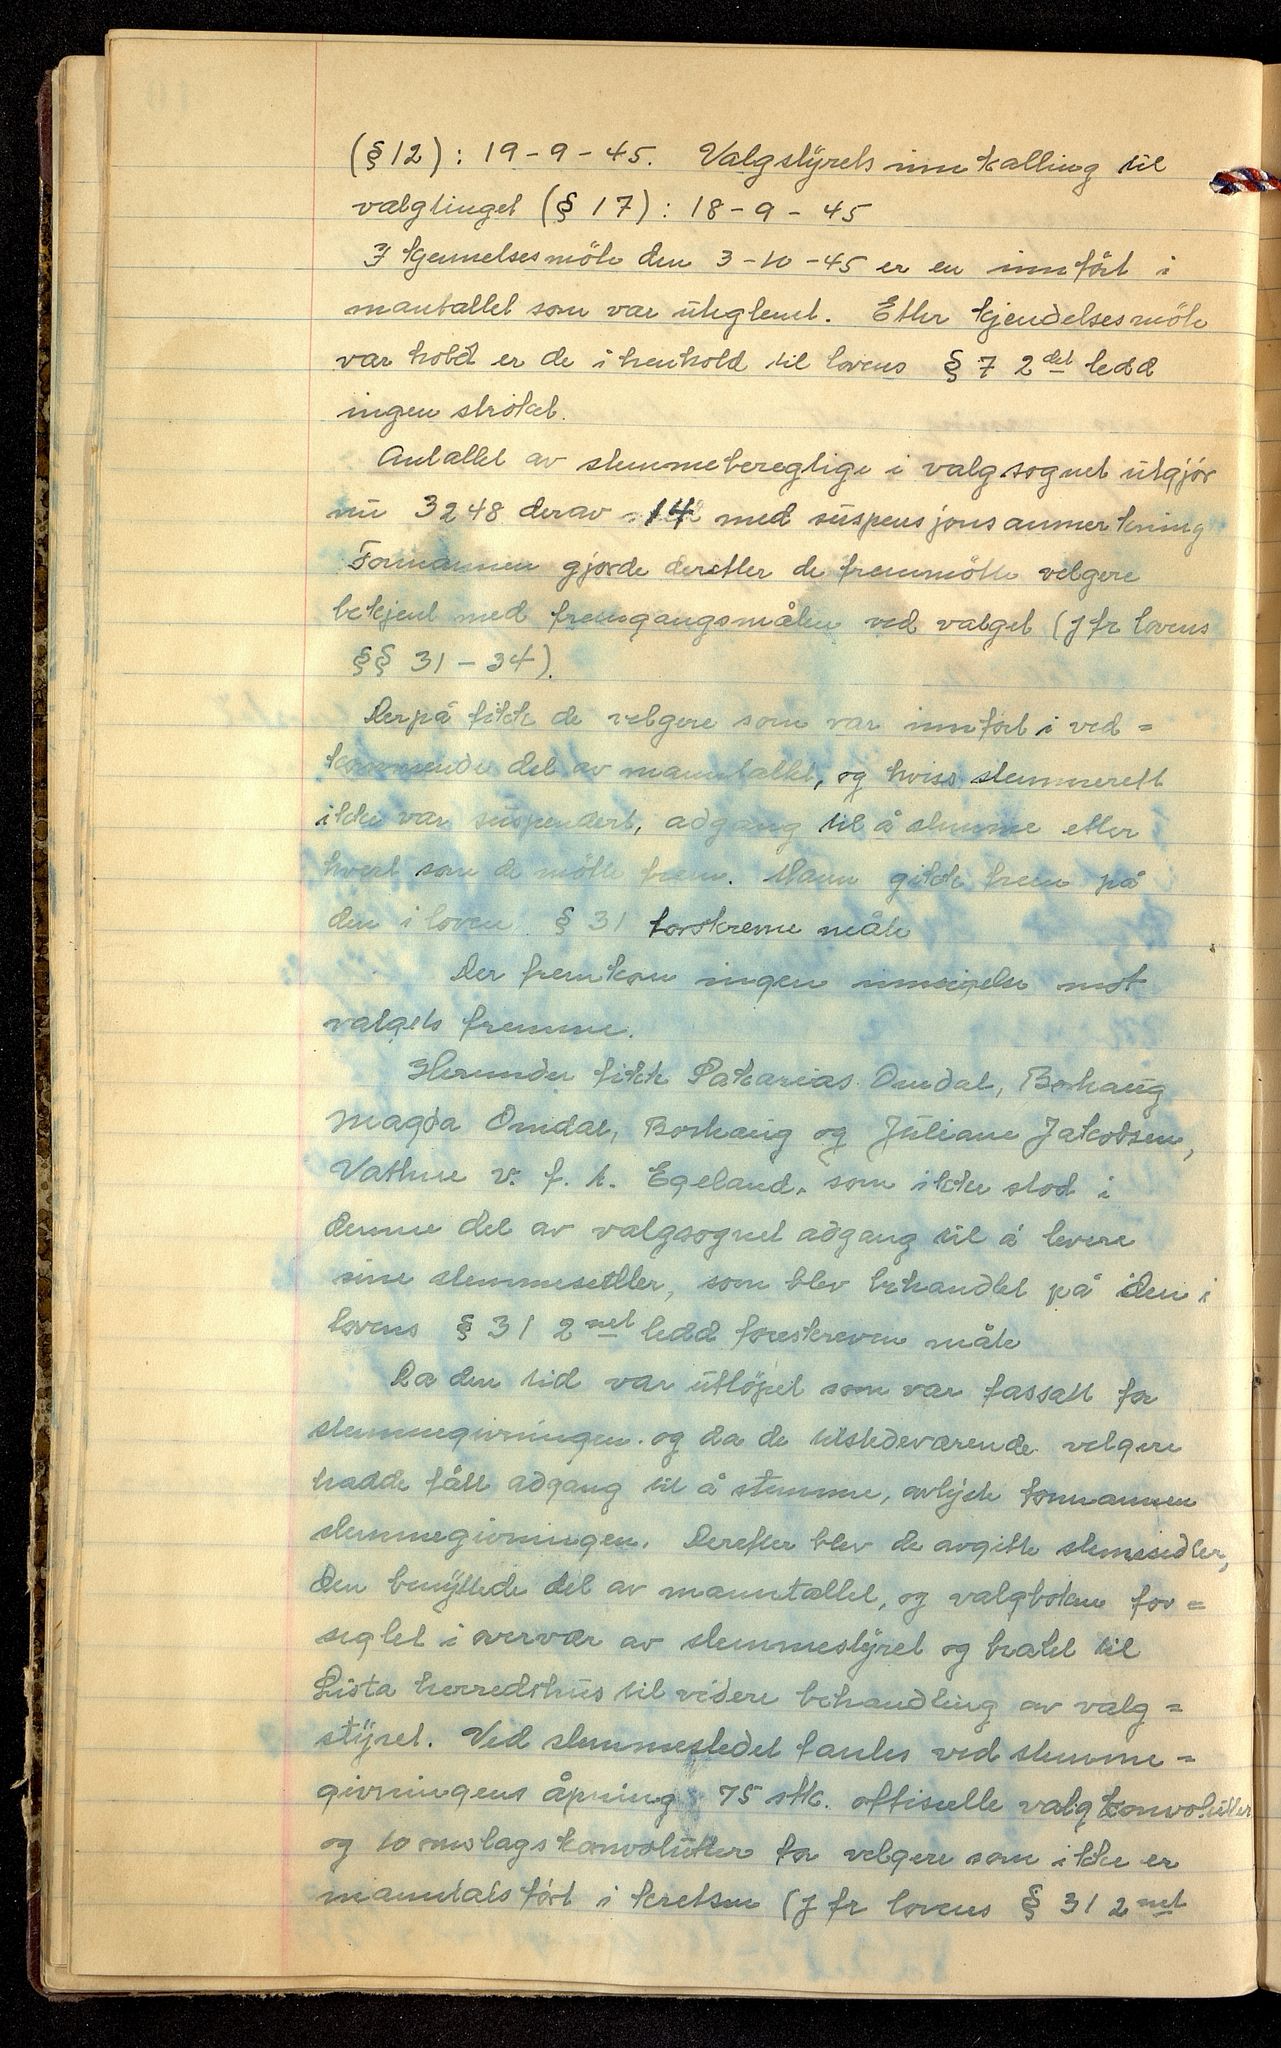 (§ 12) : 19 - 9 - 45. Valgstyrets innkalling til
valgtinget (§ 17) : 18 - 9 - 45
I kjennelsesmöte den 3 - 10 - 45 er en innfört i
mantallet som var uteglemt. Etter kjendelsesmöte
var hold er de i henhold til lovens § 7 2det ledd
ingen ströket.
Antallet av stemmeberegtige i valgsognet utgjör
nu 3248 derav 14 med suspensjonsanmerkning
Formannen gjorde deretter de fremmötte velgere
bekjent med fremgangsmåten ved valget (j fr lovens
§§ 31 - 34).
Derpå fikk de velgere som var innfört i ved=
kommende del av manntallet, og hviss stemmerett
ikke var suspendert, adgang til å stemme etter
hvert som de mötte frem. Mann gikk frem på
den i loven § 31 forskrevne måte
Der fremkom ingen innsigelse mot
valgets fremme.
Herunder fikk Sakarias Omdal, Borhaug
Magda Omdal, Borhaug og Juliane Jakobsen,
Vatne v. f. h. Egeland, som ikke stod i
denne del av valgsognet adgang til å levere
sine stemmesedler, som blev behandlet på den i
lovens § 31 2net ledd foreskreven måte
Da den tid var utlöpet som var fassatt for
stemmegivningen og da de tilstedeværende velgere
hadde fått adgang til å stemme, avlyste formannen
stemmegivningen. Derefter blev de avgitte stemsedler,
den benyttede del av manntallet, og valgboken for=
seglet i overvær av stemmestyret og brakt til
Lista herredshus til videre behandling av valg=
styret. Ved stemmestedet fantes ved stemme=
givningens åpning 75 stk. offisielle valgkonvolutter
og 10 omslagskonvolutter for velgere som ikke er
manntalsfört i kretsen (j fr lovens § 31 2net